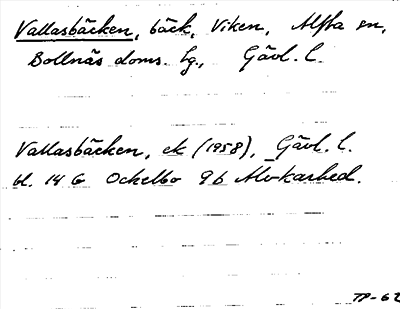 Vallasbäcken, bäck, Viken, Alfta sn,
Bollnäs doms. hg., Gävl. l.
Vallasbäcken, ek (1958), Gävl. l.
bl. 14 G Ockelbo 9b Alvkarhed.
TP-62